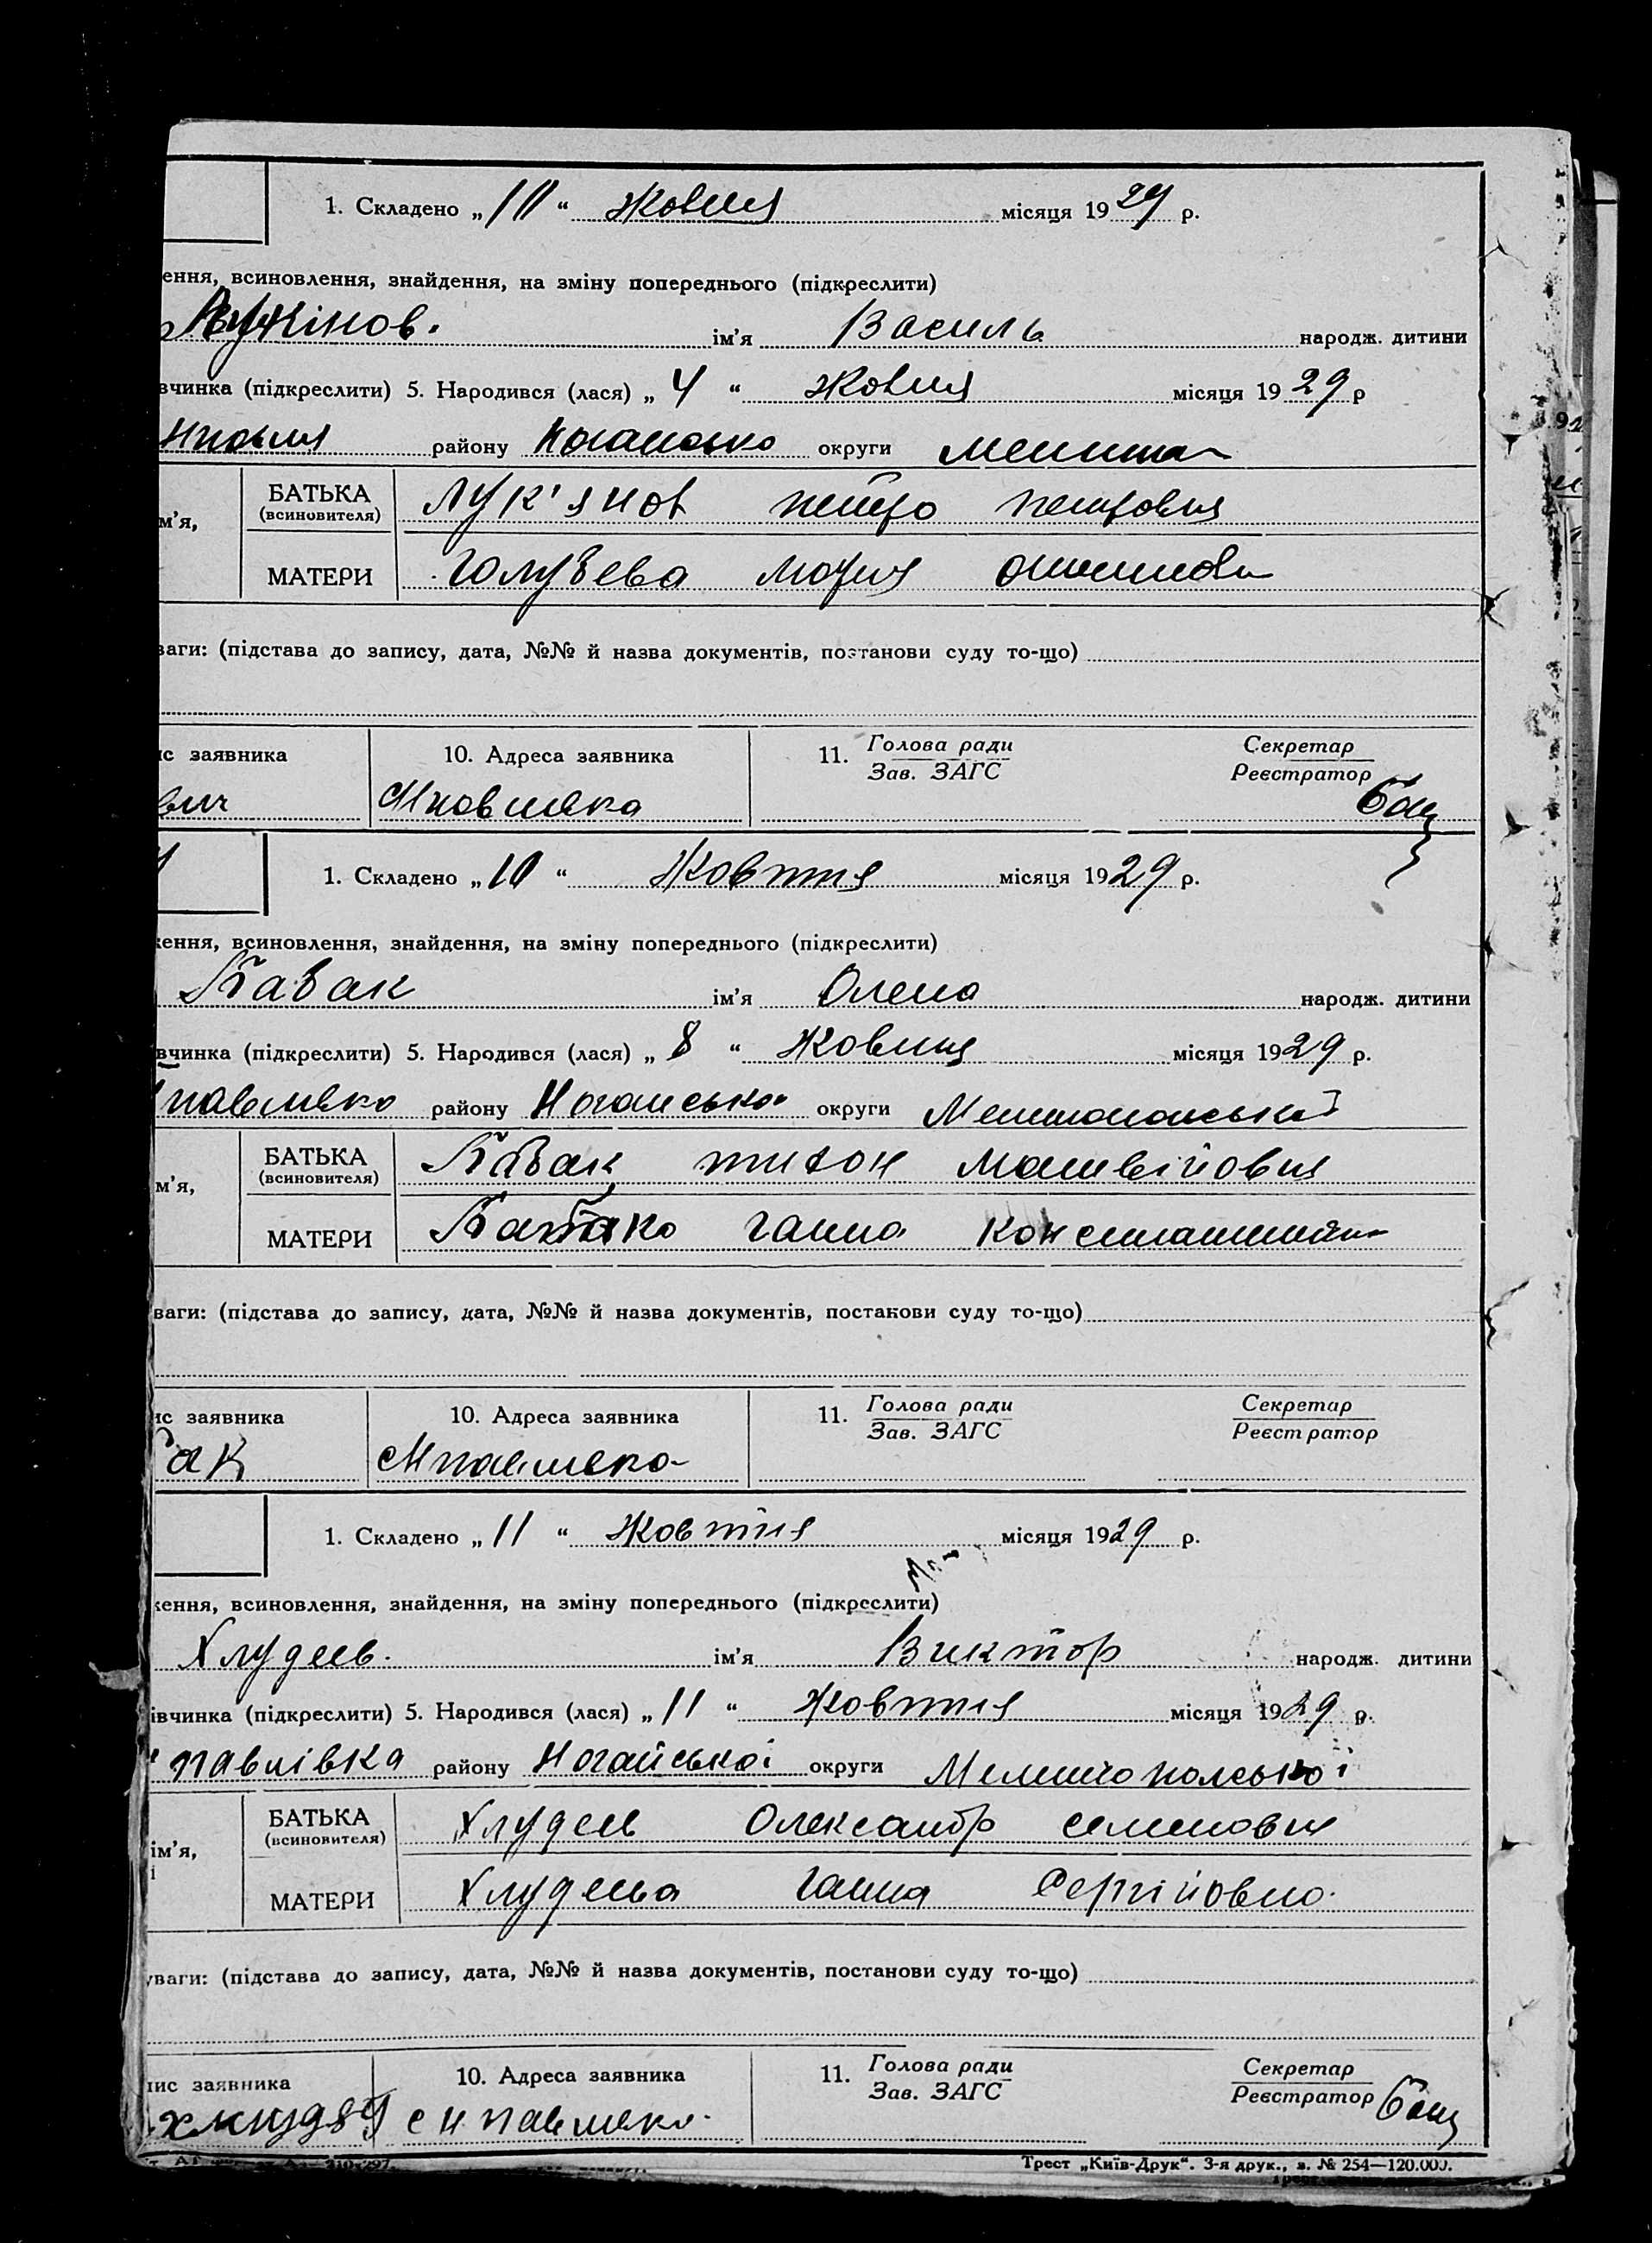 1. Складено „10“ Жовтня місяця 1929 р.
ення, всиновлення, знайдення, на зміну попереднього (підкреслити)
ім'я Василь народж. дитини
вчинка (підкреслити) 5. Народився (лася) „4“ Жовтня місяця 1929 р
району округи
м'я, БАТЬКА (всиновителя) Лук'янов Петро Петрович
МАТЕРИ Голубева Мария
ваги: (підстава до запису, дата, №№ й назва документів, постанови суду то-що)
ис заявника 10. Адреса заявника 11. Голова ради Секретар
Зав. ЗАГС Реєстратор
вич
1. Складено „10“ Жовтня місяця 1929 р.
ження, всиновлення, знайдення, на зміну попереднього (підкреслити)
Бабак ім'я Олена народж. дитини
вчинка (підкреслити) 5. Народився (лася) „8“ Жовтня місяця 1929 р.
району Ногайської округи Мелітопольської
м'я, БАТЬКА (всиновителя) Бабак Тихон Матвійович
МАТЕРИ Ганна
ваги: (підстава до запису, дата, №№ й назва документів, постанови суду то-що)
ис заявника 10. Адреса заявника 11. Голова ради Секретар
Зав. ЗАГС Реєстратор
бак
1. Складено „11“ Жовтня місяця 1929 р.
ження, всиновлення, знайдення, на зміну попереднього (підкреслити)
Хлудеев. ім'я Виктор народж. дитини
івчинка (підкреслити) 5. Народився (лася) „11“ Жовтня місяця 1929 р.
павлівка району Ногайської округи Мелитопольської
ім'я, БАТЬКА (всиновителя) Хлудеев Олександр Семенович
і
МАТЕРИ Хлудеева Ганна Сергійовна.
уваги: (підстава до запису, дата, №№ й назва документів, постанови суду то-що)
пис заявника 10. Адреса заявника 11. Голова ради Секретар
Зав. ЗАГС Реєстратор
Трест „Київ-Друк“. 3-я друк., з. № 254—120.000.